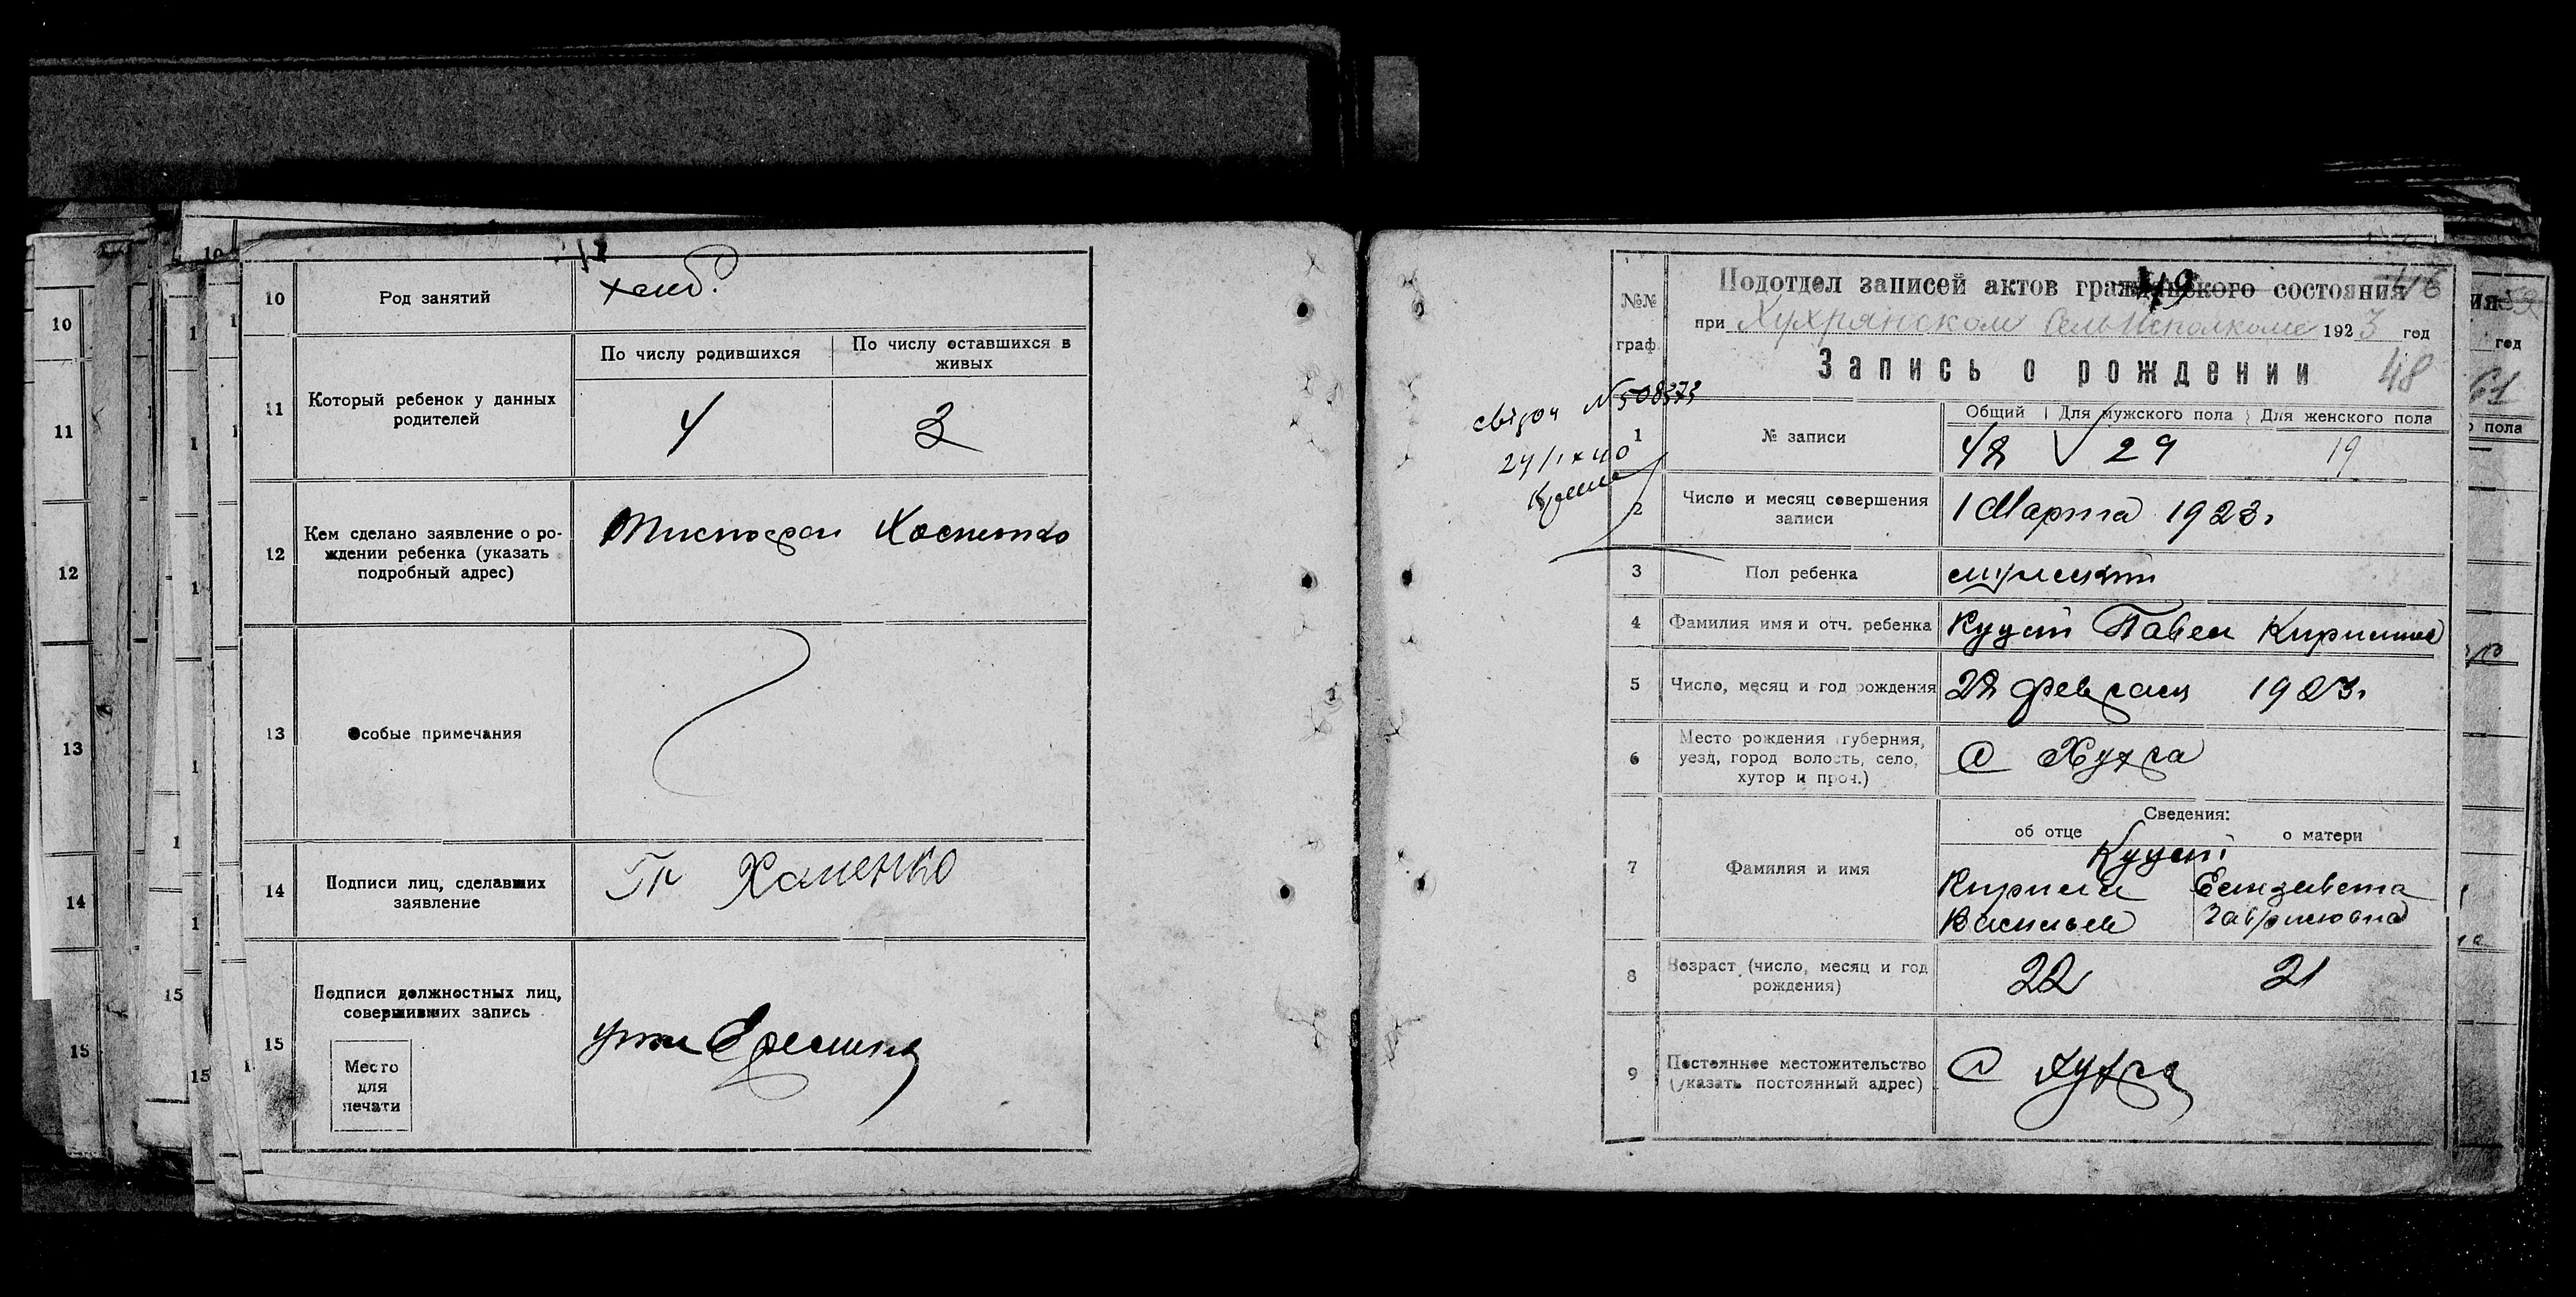 10
Род занятий
хлеб.
11
Который ребенок у данных
родителей
По числу родившихся
По числу оставшихся в
живых
4
3
12
Кем сделано заявление о ро-
ждении ребенка (указать
подробный адрес)
13
Особые примечания
14
Подписи лиц, сделавших
заявление
Гр Хаменко
15
Подписи должностных лиц,
совершивших запись
Место
для
печати
№№
граф.
Подотдел записей актов гражданского состояния
49
при Хухрянском Сельисполкоме 1923 год
Запись о рождении 48
N 508373
1
№ записи
Общий Для мужского пола Для женского пола
48 29 19
2
Число и месяц совершения
записи
1 Марта 1923 г
3
Пол ребенка
мужской
4
Фамилия имя и отч. ребенка
Куцый Павел Кирилов
5
Число, месяц и год рождения
28 февраля 1923 г.
6
Место рождения (губерния,
уезд, город волость, село,
хутор и проч.)
С Хухра
7
Фамилия и имя
Сведения:
об отце
о матери
Куцый
Кирилл Елизавета
Васильев Гавриловна
8
Возраст (число, месяц и год
рождения)
22 21
9
Постоянное местожительство
(указать постоянный адрес)
С Хухра